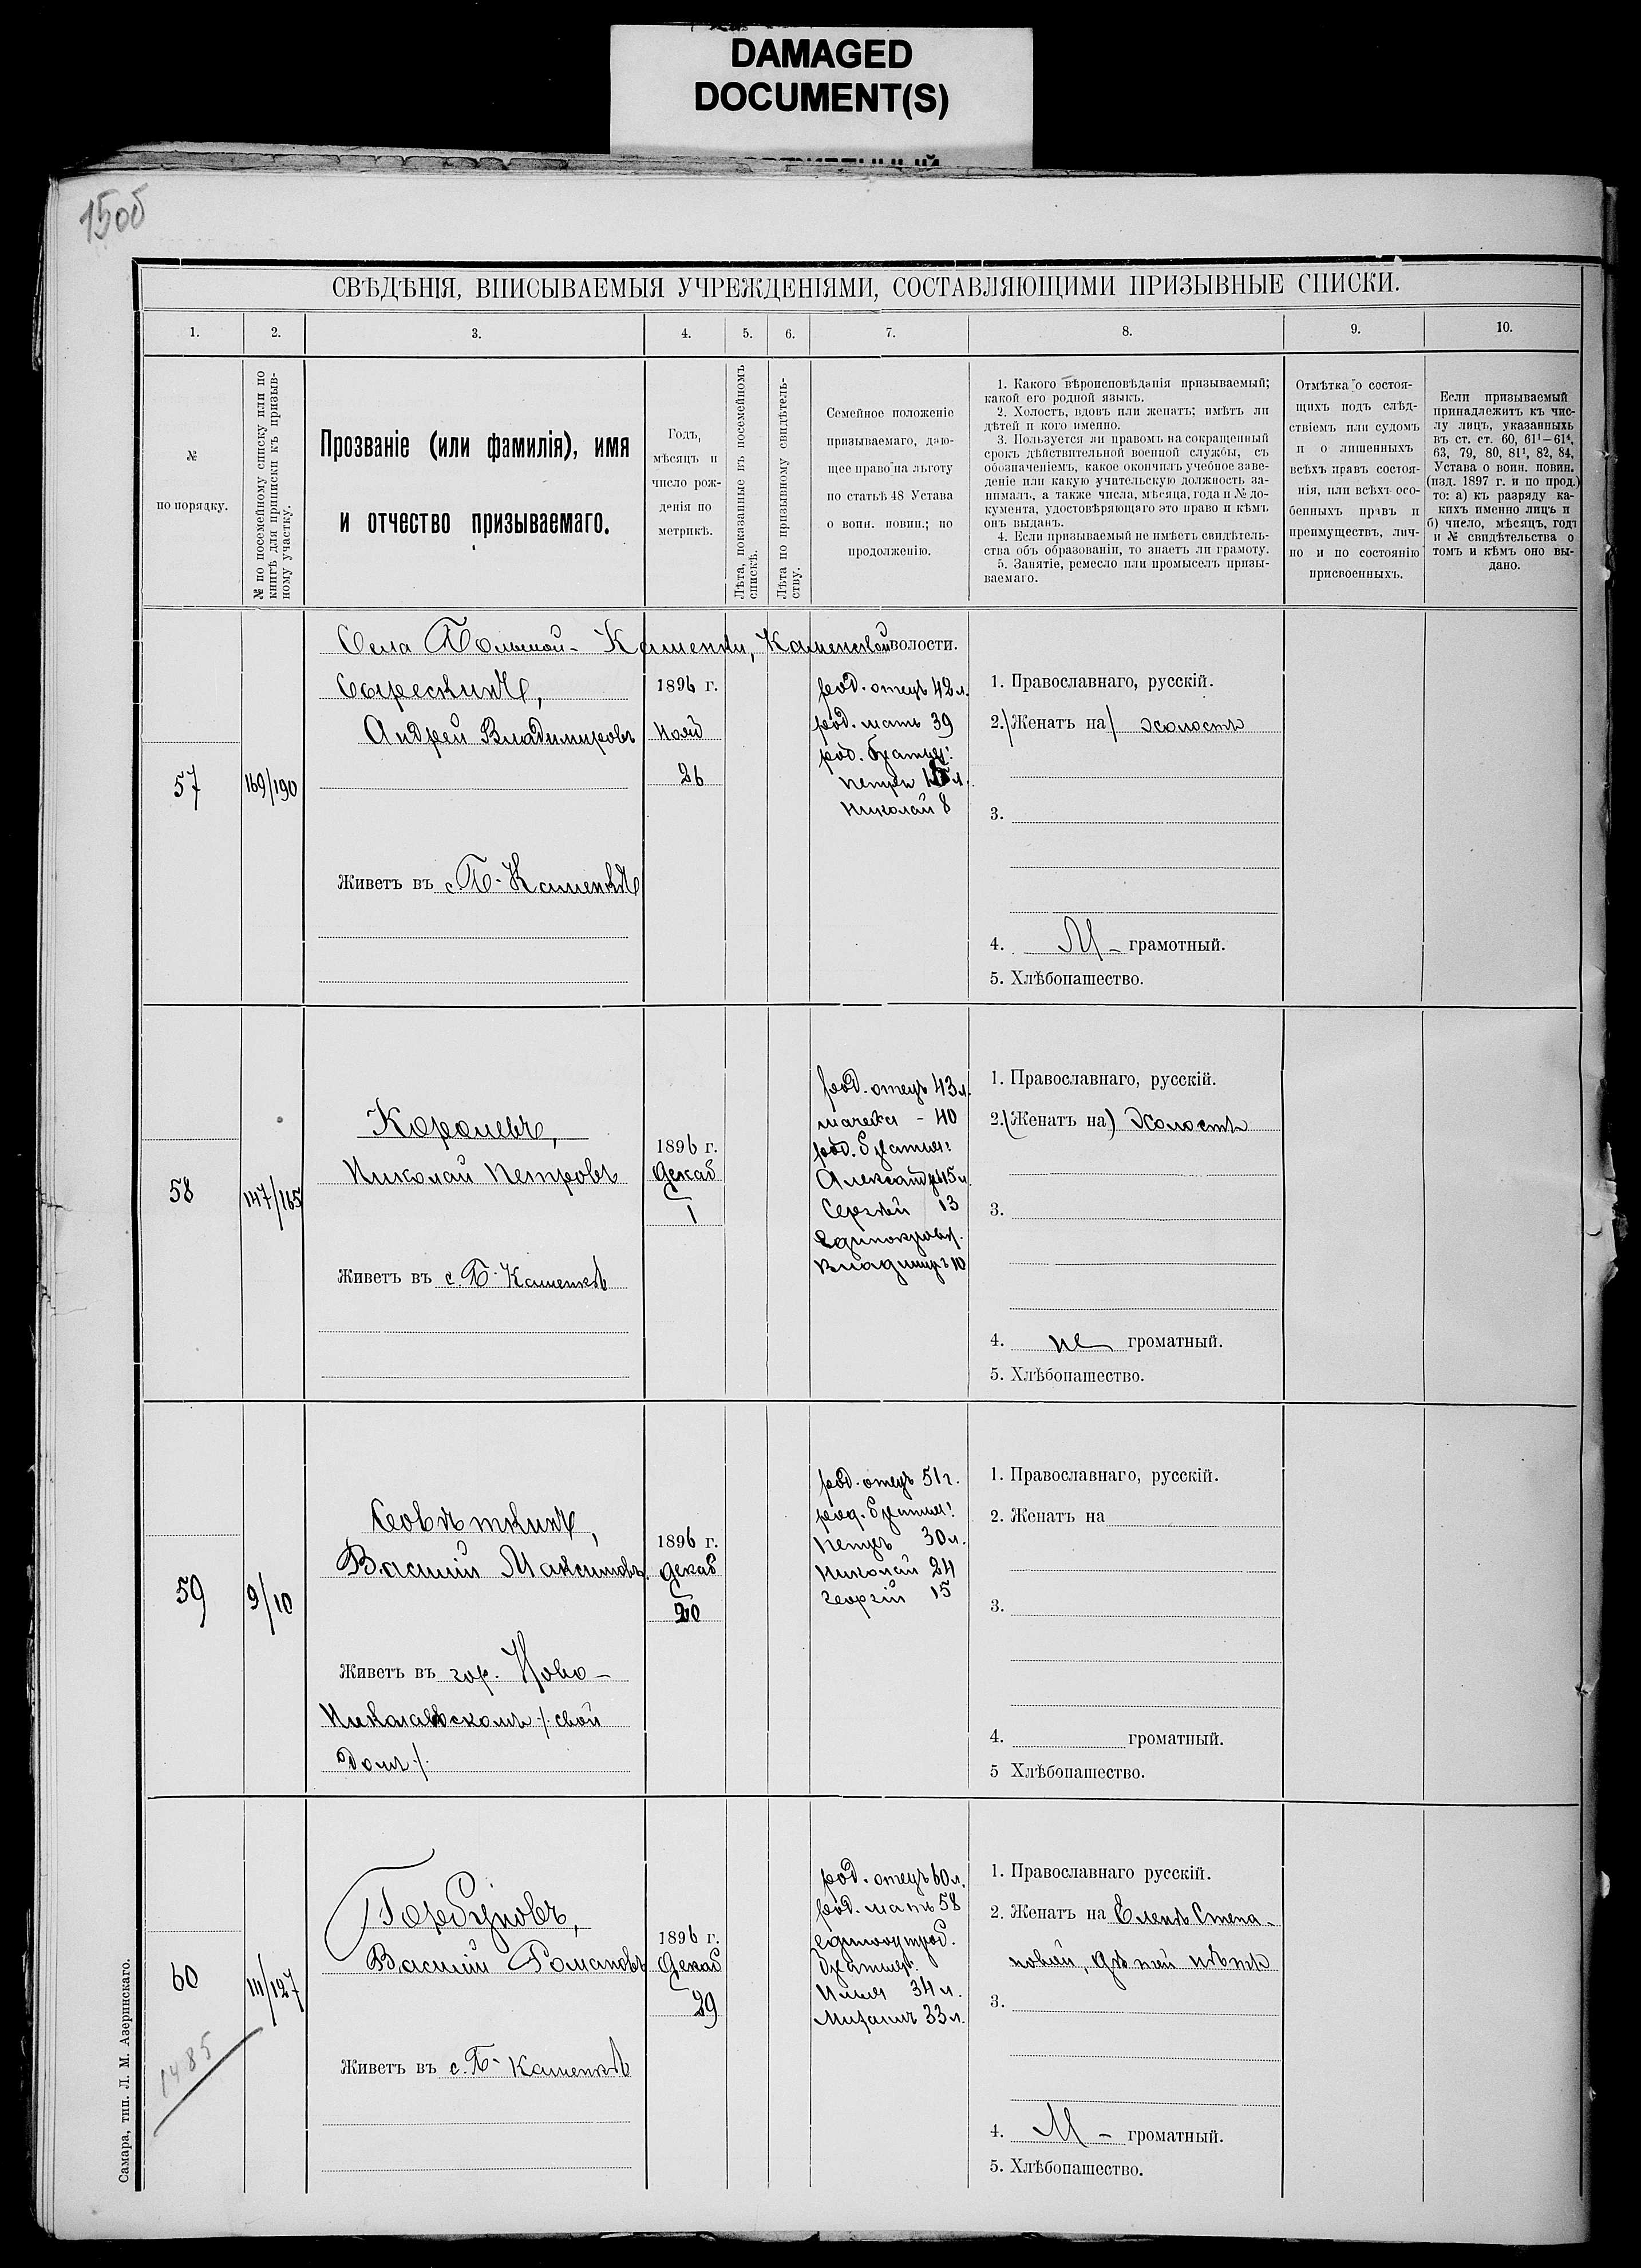 DAMAGED
DOCUMENT(S)
150б
СВѢДѢНІЯ, ВПИСЫВАЕМЫЯ УЧРЕЖДЕНІЯМИ, СОСТАВЛЯЮЩИМИ ПРИЗЫВНЫЕ СПИСКИ.
1. 2. 3. 4. 5. 6. 7. 8. 9. 10.
№
по порядку.
№ по посемейному списку или по
книгѣ для приписки къ призыв-
ному участку.
Прозваніе (или фамилія), имя
и отчество призываемаго.
Годъ,
мѣсяцъ и
число рож-
денія по
метрикѣ.
Лѣта, показанные въ посемейномъ
спискѣ.
Лѣта по призывному свидѣтель-
ству.
Семейное положеніе
призываемаго, даю-
щее право на льготу
по статьѣ 48 Устава
о воин. повин.; по
продолженію.
1. Какого вѣроисповѣданія призываемый;
какой его родной языкъ.
2. Холостъ, вдовъ или женатъ; имѣтъ ли
дѣтей и кого именно.
3. Пользуется ли правомъ на сокращенный
срокъ дѣйствительной военной службы, съ
обозначеніемъ, какое окончилъ учебное заве-
деніе или какую учительскую должность за-
нималъ, а также числа, мѣсяца, года и № до-
кумента, удостовѣряющаго это право и кѣмъ
онъ выданъ.
4. Если призываемый не имѣетъ свидѣтель-
ства объ образованіи, то знаетъ ли грамоту.
5. Занятіе, ремесло или промыселъ призы-
ваемаго.
Отмѣтка о состоя-
щихъ подъ слѣд-
ствіемъ или судомъ
и о лишенныхъ
всѣхъ правъ состоя-
нія, или всѣхъ осо-
бенныхъ правъ и
преимуществъ, лич-
но и по состоянію
присвоенныхъ.
Если призываемый
принадлежитъ къ чис-
лу лицъ, указанныхъ
въ ст. ст. 60, 61¹—61⁴,
63, 79, 80, 81¹, 82, 84,
Устава о воин. повин.
(изд. 1897 г. и по прод.)
то: а) къ разряду ка-
кихъ именно лицъ и
б) число, мѣсяцъ, годъ
и № свидѣтельства о
томъ и кѣмъ оно вы-
дано.
Села Большой-Каменки, Каменской волости.
57
169/190
Сырескинъ,
Андрей Владимировъ
Живетъ въ с Б. Каменкѣ
1896 г.
Нояб
26
род. отецъ 42 л.
род. мать 39
род. братья:
Петръ 15 л.
Николай 8
1. Православнаго, русскій.
2. /Женатъ на/ холостъ
3.
4. М - грамотный.
5. Хлѣбопашество.
58
147/165
Королевъ,
Николай Петровъ
Живетъ въ с. Б. Каменкѣ
1896 г.
Декаб
1
род. отецъ 43 л.
мачеха - 40
род. братья:
Александръ 15 л.
Сергѣй 13
Единокровн.
Владимиръ 10
1. Православнаго, русскій.
2. (Женатъ на) Холостъ
3.
4. не громатный.
5. Хлѣбопашество.
59
9/10
Совѣткинъ,
Василій Максимовъ.
Живетъ въ гор. Ново-
Николаевскомъ /. свой
домъ ./.
1896 г.
Декаб
20
род. отецъ 51 г.
род. братья:
Петръ 30 л.
Николай 24
Георгій 15
1. Православнаго, русскій.
2. Женатъ на
3.
4. громатный.
5 Хлѣбопашество.
60
111/127
1485
Горбуновъ,
Василій Романовъ
Живетъ въ с. Б- Каменкѣ
1896 г.
Декаб
29
род. отецъ 60 л.
род. мать 58
единоутроб.
братья:
Илья 34 л.
Михаилъ 33 л.
1. Православнаго русскій.
2. Женатъ на Еленѣ Степа-
новой, дѣтей нѣтъ
3.
4. М - громатный.
5. Хлѣбопашество.
Самара, тип. Л. М. Азеринскаго.